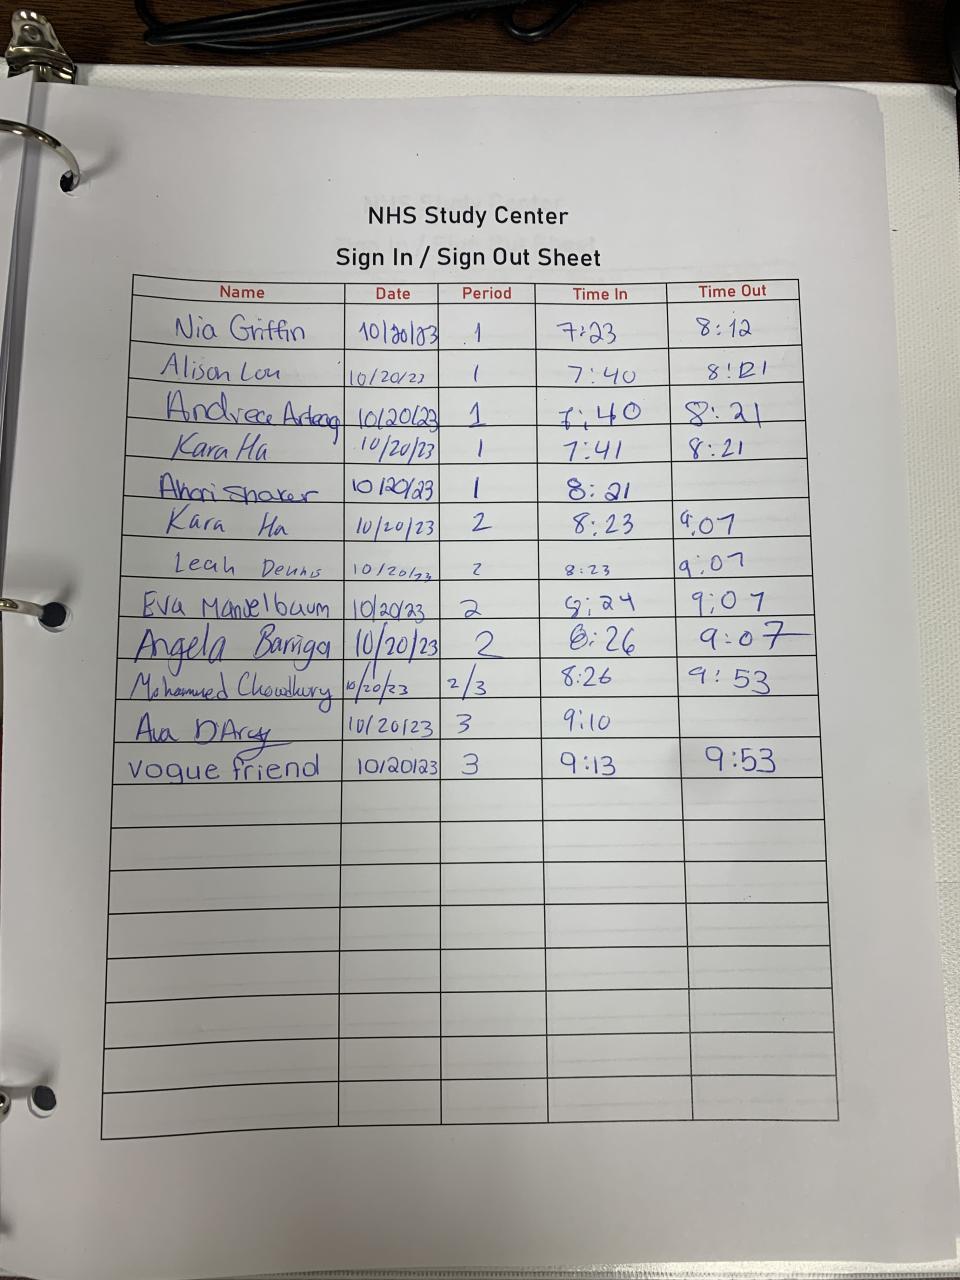 NHS Study Center
Sign In / Sign Out Sheet
Name Date Period Time In Time Out
Nia Griffin 10/20/23 1 7:23 8:12
Alison Lou 10/20/23 1 7:40 8:21
Andreea 10/20/23 1 7:40 8:21
Kara Ha 10/20/23 1 7:41 8:21
10/20/23 1 8:21
Kara Ha 10/20/23 2 8:23 9:07
Leah Dennis 10/20/23 2 8:23 9:07
Eva Mandelbaum 10/20/23 2 8:24 9:07
Angela Barriga 10/20/23 2 8:26 9:07
Mohammed Chowdhury 10/20/23 2/3 8:26 9:53
Ava D'Arcy 10/20/23 3 9:10
vogue friend 10/20/23 3 9:13 9:53